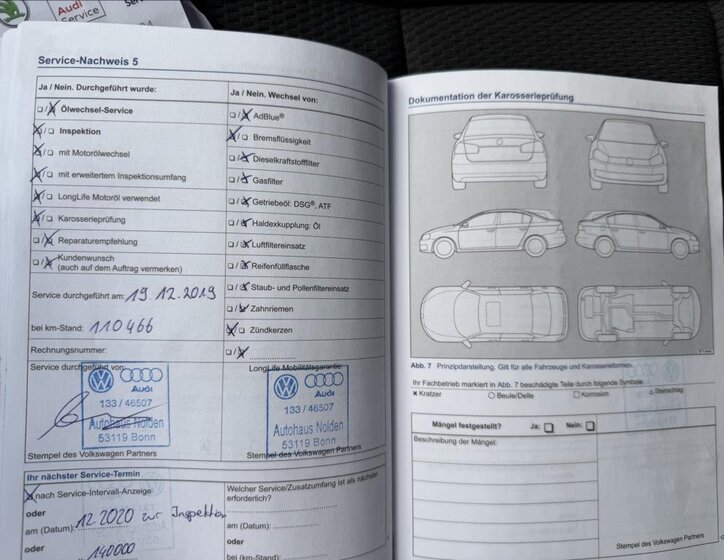 Audi
Service
Service-Nachweis 5
Ja / Nein. Durchgeführt wurde:
Ja / Nein. Wechsel von:
Ölwechsel-Service
Inspektion
mit Motorölwechsel
mit erweitertem Inspektionsumfang
LongLife Motoröl verwendet
Karosserieprüfung
Reparaturempfehlung
Kundenwunsch
(auch auf dem Auftrag vermerken)
AdBlue®
Bremsflüssigkeit
Dieselkraftstofffilter
Gasfilter
Getriebeöl: DSG®, ATF
Haldexkupplung: Öl
Luftfiltereinsatz
Reifenfüllflasche
Staub- und Pollenfiltereinsatz
Zahnriemen
Zündkerzen
Service durchgeführt am: 19.12.2019
bei km-Stand: 110466
Rechnungsnummer:
Service durchgeführt von:
Audi
133 / 46507
Autohaus Nolden
53119 Bonn
Stempel des Volkswagen Partners
LongLife Mobilitätsgarantie:
Audi
133 / 46507
Autohaus Nolden
53119 Bonn
Stempel des Volkswagen Partners
Ihr nächster Service-Termin
nach Service-Intervall-Anzeige
oder
am (Datum): 12.2020 zur Inspektion
oder
140000
Welcher Service/Zusatzumfang ist als nächster
erforderlich?
am (Datum):
oder
bei (km-Stand):
Dokumentation der Karosserieprüfung
Abb. 7 Prinzipdarstellung. Gilt für alle Fahrzeuge und Karosserieformen.
Ihr Fachbetrieb markiert in Abb. 7 beschädigte Teile durch folgende Symbole:
Kratzer
Beule/Delle
Korrosion
Steinschlag
Mängel festgestellt? Ja: Nein:
Beschreibung der Mängel:
Stempel des Volkswagen Partners